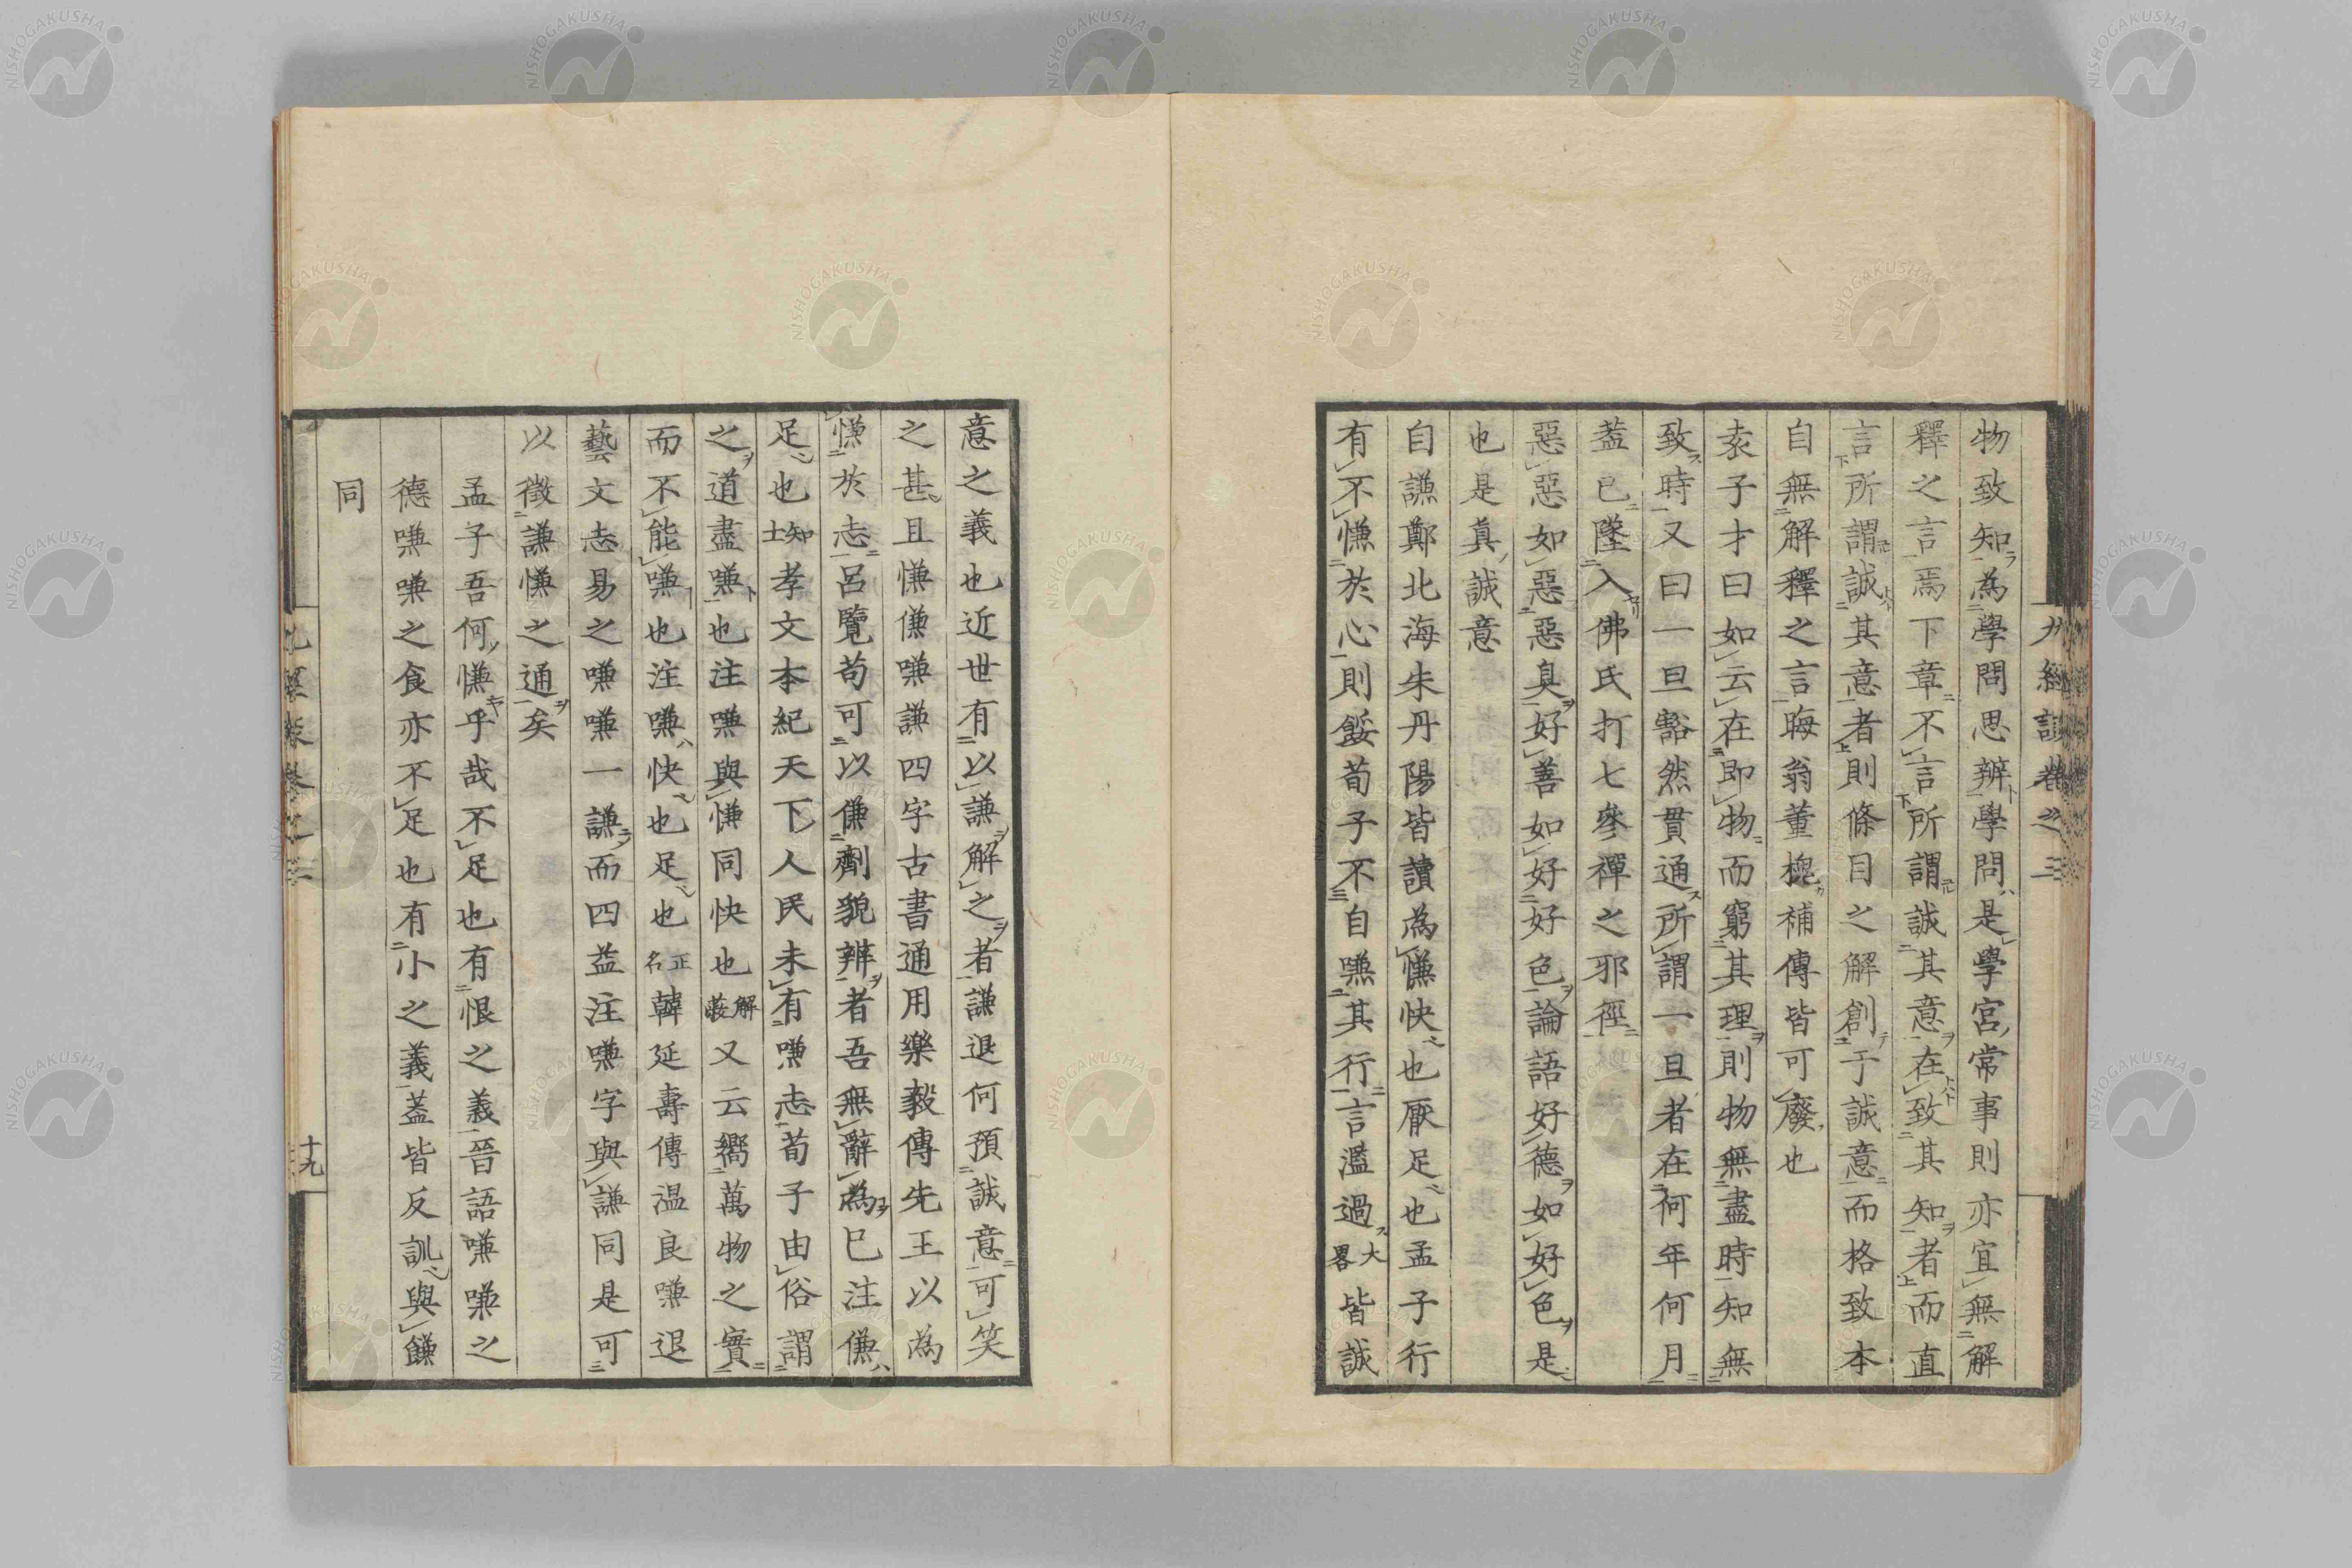 物致知為學問思辨學問是學宮常事則亦宜無解
釋之言焉下章不言所謂誠其意在致其知者而直
言所謂誠其意者則條目之解創于誠意而格致本
自無解釋之言晦翁董槐補傳皆可廢也
袁子才曰如云在即物而窮其理則物無盡時知無
致時又曰一旦豁然貫通所謂一旦者在何年何月
蓋已墜入佛氏打七參禪之邪徑
惡惡如惡惡臭好善如好好色論語好德如好色是
也是真誠意
自謙鄭北海朱丹陽皆讀為慊快也厭足也孟子行
有不慊於心則餒荀子不自嗛其行言濫過大畧皆誠
九經談卷之三
意之義也近世有以謙解之者謙退何預誠意可笑
之甚且慊傔嗛謙四字古書通用樂毅傳先王以為
慊於志呂覽苟可以傔劑貌辨者吾無辭為已注傔
足也知士孝文本紀天下人民未有嗛志荀子由俗謂
之道盡嗛也注嗛與慊同快也解蔽又云嚮萬物之實
而不能嗛也注嗛快也足也正名韓延壽傳温良嗛退
藝文志易之嗛嗛一謙而四益注嗛字與謙同是可
以徵謙慊之通矣
孟子吾何慊乎哉不足也有恨之義晉語嗛嗛之
德嗛嗛之食亦不足也有小之義蓋皆反訓與饊
同
十九
NISHOGAKUSHA